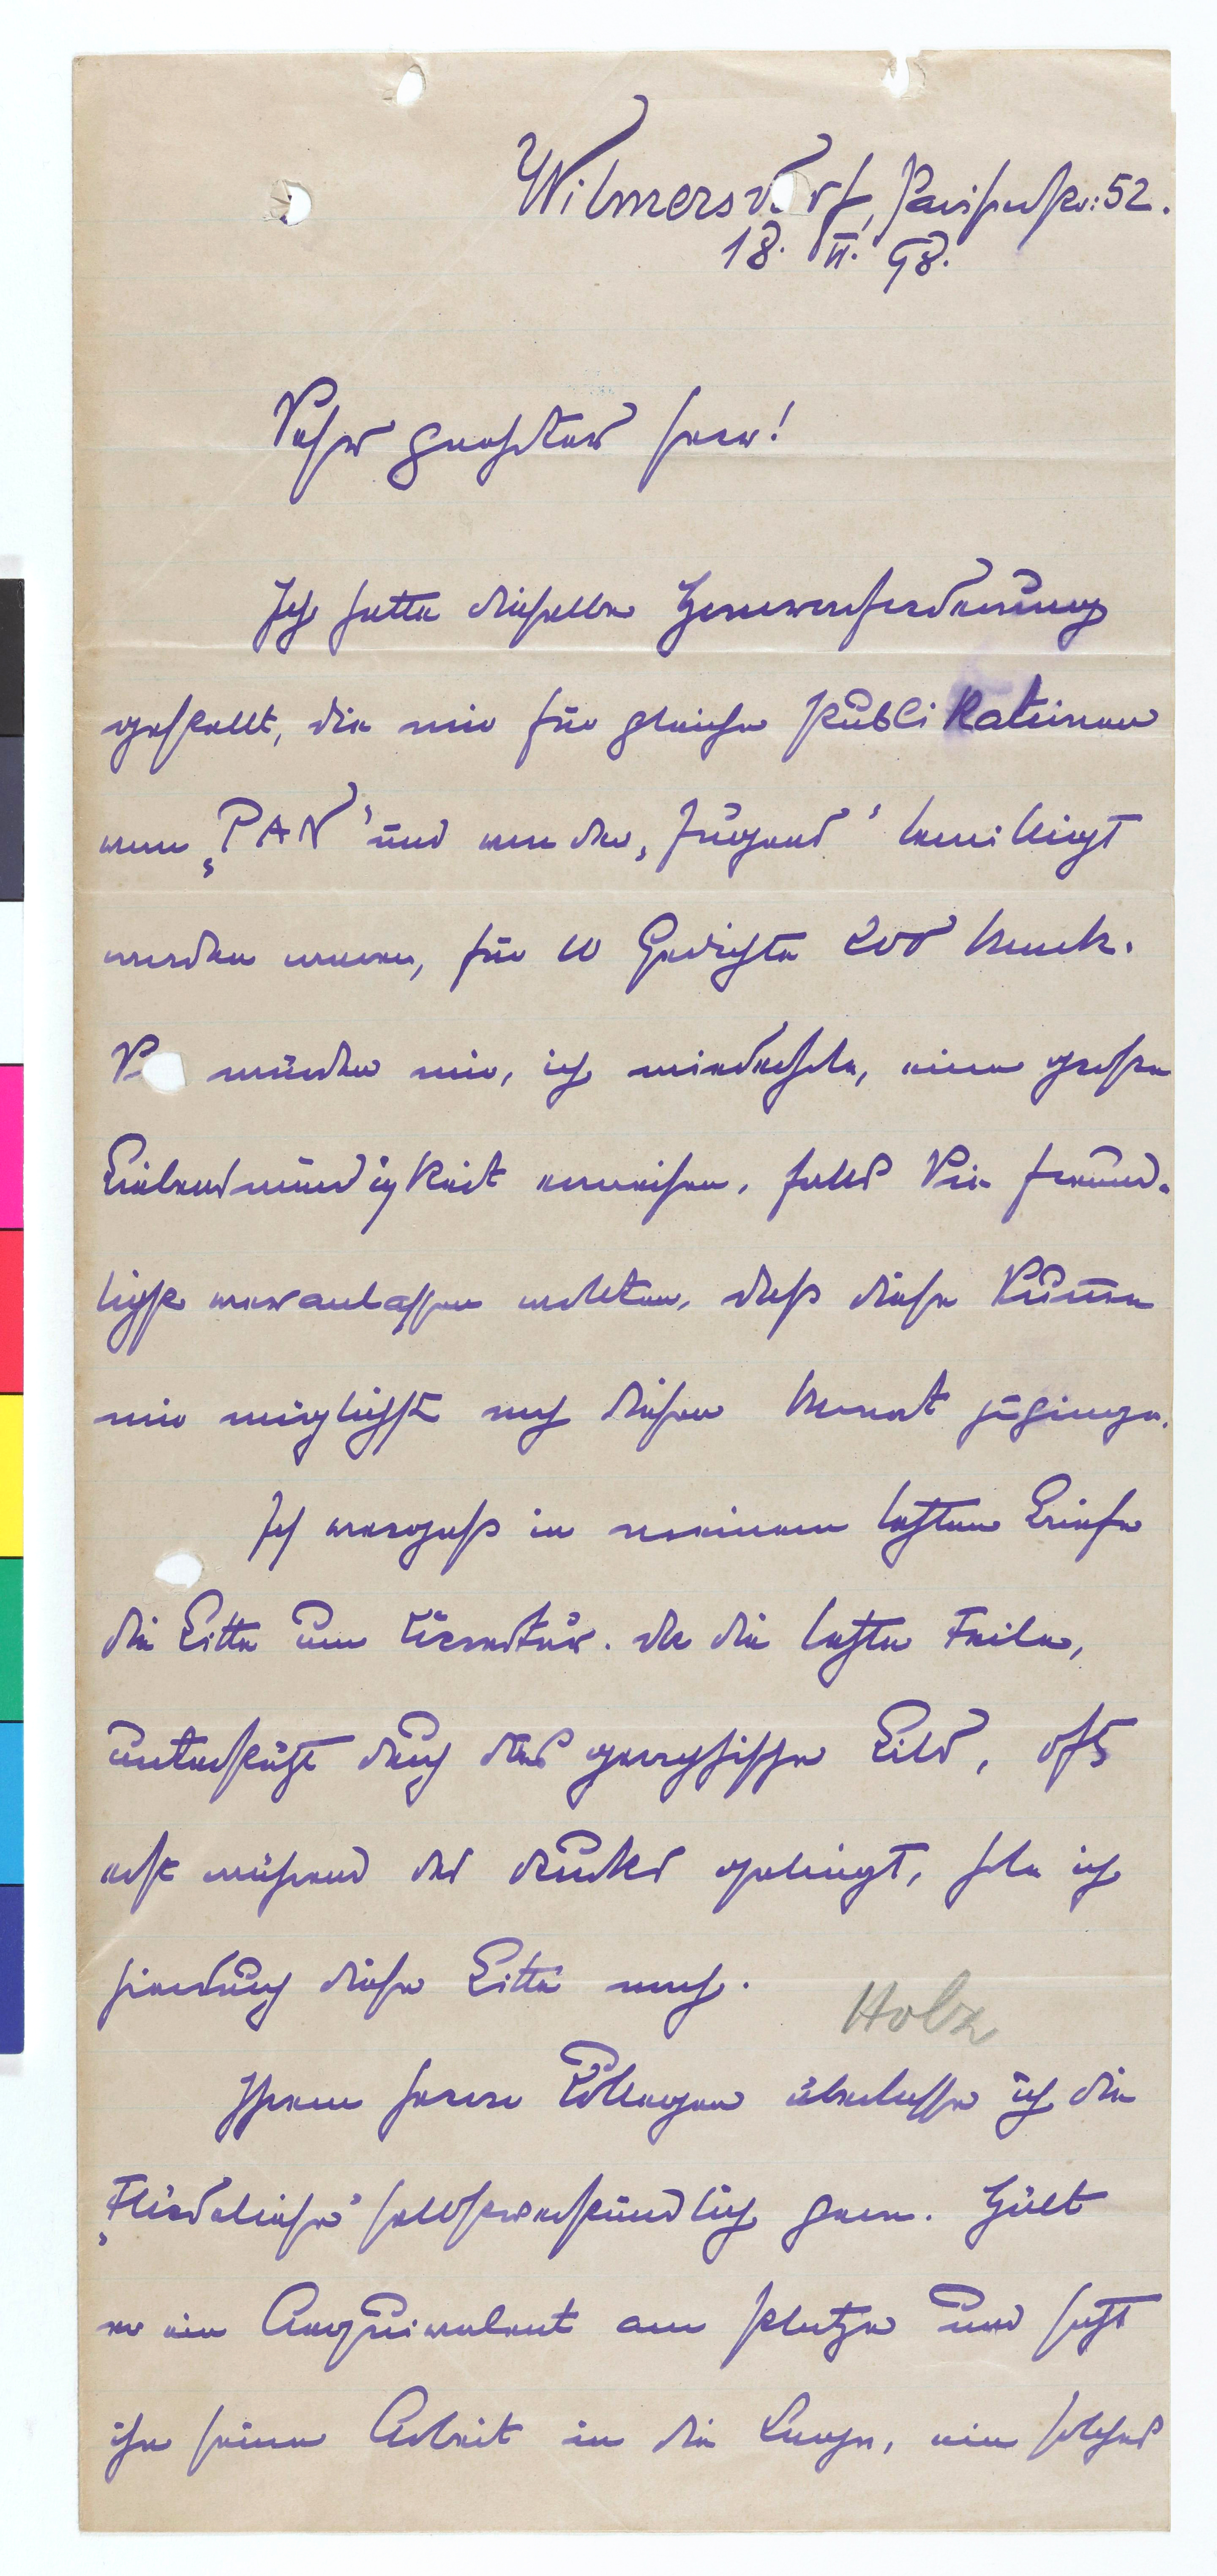 Wilmersdorf, Pariserstr: 52.
18. VI. 98.
Sehr geehrter Herr!
Ich hatte dieselbe Honorarforderung
gestellt, die mir für gleiche Publikationen
vom „PAN“ und von der „Jugend“ bewilligt
worden waren, für 10 Gedichte 200 Mark.
S würden mir, ich wiederhole, eine große
Liebenswürdigkeit erweisen, falls Sie freund-
lichst veranlassen wollten, daß diese Summe
mir möglichst noch diesen Monat zuginge.
Ich vergaß in meinem letzten Briefe
die Bitte um Correktur. da die letzte Feile,
unterstützt durch das graphische Bild, oft
erst während des Drucks gelingt, hole ich
hierdurch diese Bitte nach.
Holz
Ihrem Herrn Collegen überlasse ich die
selbstverständlich gern. Hält
er ein Aequivalent am Platze und setzt
ihn seine Arbeit in die Lage, ein solches